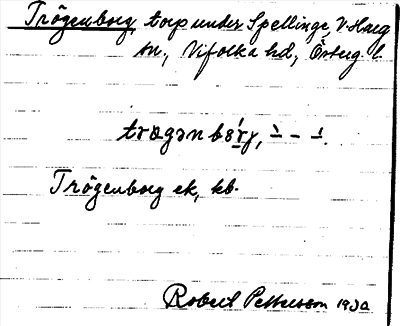 Trögenborg, torp under Spellinge, V. Harg
sn., Vifolka hd, Österg l.
Trögenborg ek, kb.
Robert Pettersson 1930